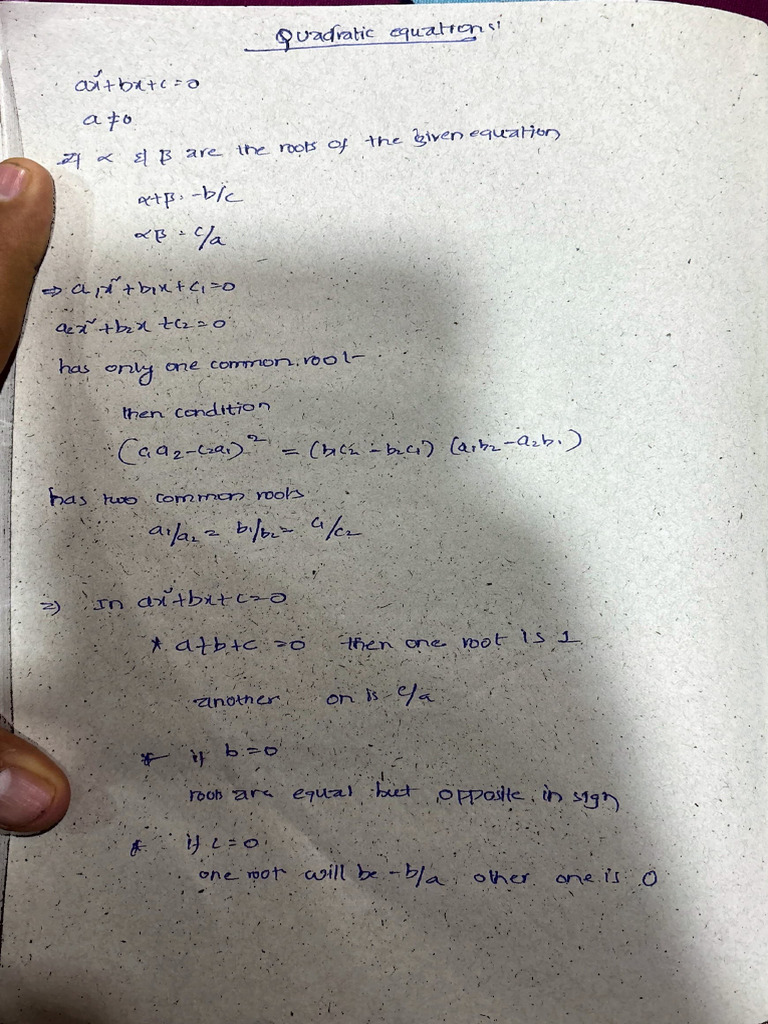 Quadratic equations:
ax²+bx+c=0
a≠0
If α & β are the roots of the given equation
α+β = -b/c
αβ = c/a
⇒ a₁x²+b₁x+c₁=0
a₂x²+b₂x+c₂=0
has only one common root
then condition
(c₁a₂-c₂a₁)² = (b₁c₂-b₂c₁) (a₁b₂-a₂b₁)
has two common roots
a₁/a₂ = b₁/b₂ = c₁/c₂
⇒ In ax²+bx+c=0
* a+b+c=0 then one root is 1
another on is c/a
* if b=0
roots are equal but opposite in sign
* if c=0
one root will be -b/a other one is 0